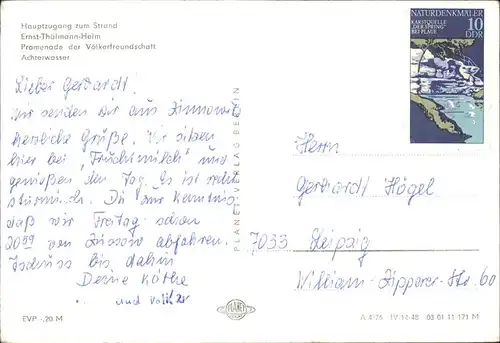 Hauptzugang zum Strand
Ernst-Thälmann-Heim
Promenade der Völkerfreundschaft
Achterwasser
NATURDENKMÄLER
KARSTQUELLE
„DER SPRING"
BEI PLAUE
10
DDR
Lieber Gerhardt!
Wir senden dir aus Zinnowitz
herzliche Grüße. Wir sitzen
hier bei „Fruchtmilch" und
genießen den Tag. Es ist recht
stürmisch. Du zur Kenntnis
daß wir Freitag schon
20⁰⁹ von Züssow abfahren.
Tschüss bis dahin
Deine Käthe
und
PLANET-VERLAG BERLIN
Herrn
Gerhardt Högel
7033 Leipzig
William-Zipperer-Str. 60
EVP -,20 M
PLANET
A 4176 IV-14-48 03 01 11 171 M